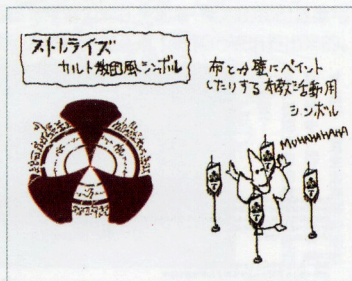 ストレライズ
カルト教団風シンボル
布とか壁にペイント
したりする布教活動用
シンボル
MUHAHAHAHA